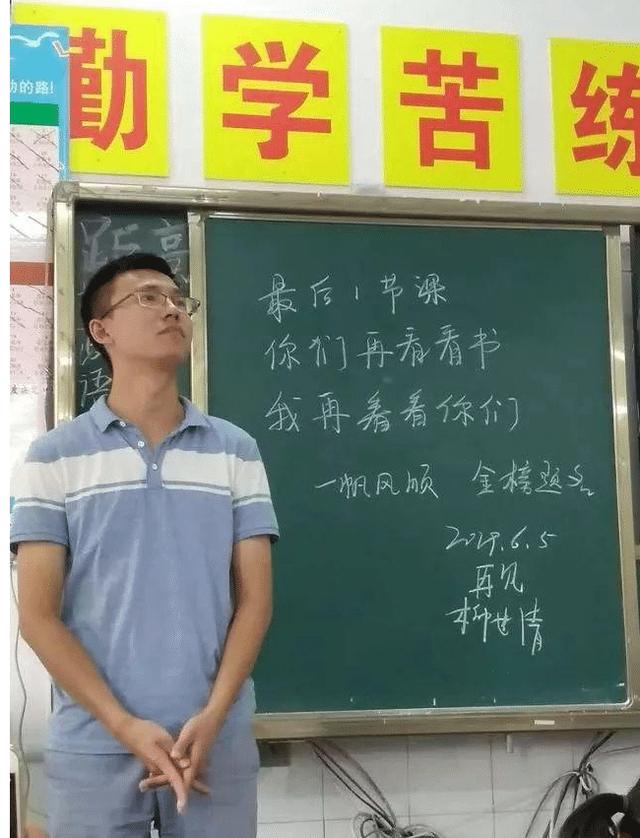 勤学苦练
的路!
距高
语
最后1节课
你们再看看书
我再看看你们
一帆风顺 金榜题名
2019.6.5
再见